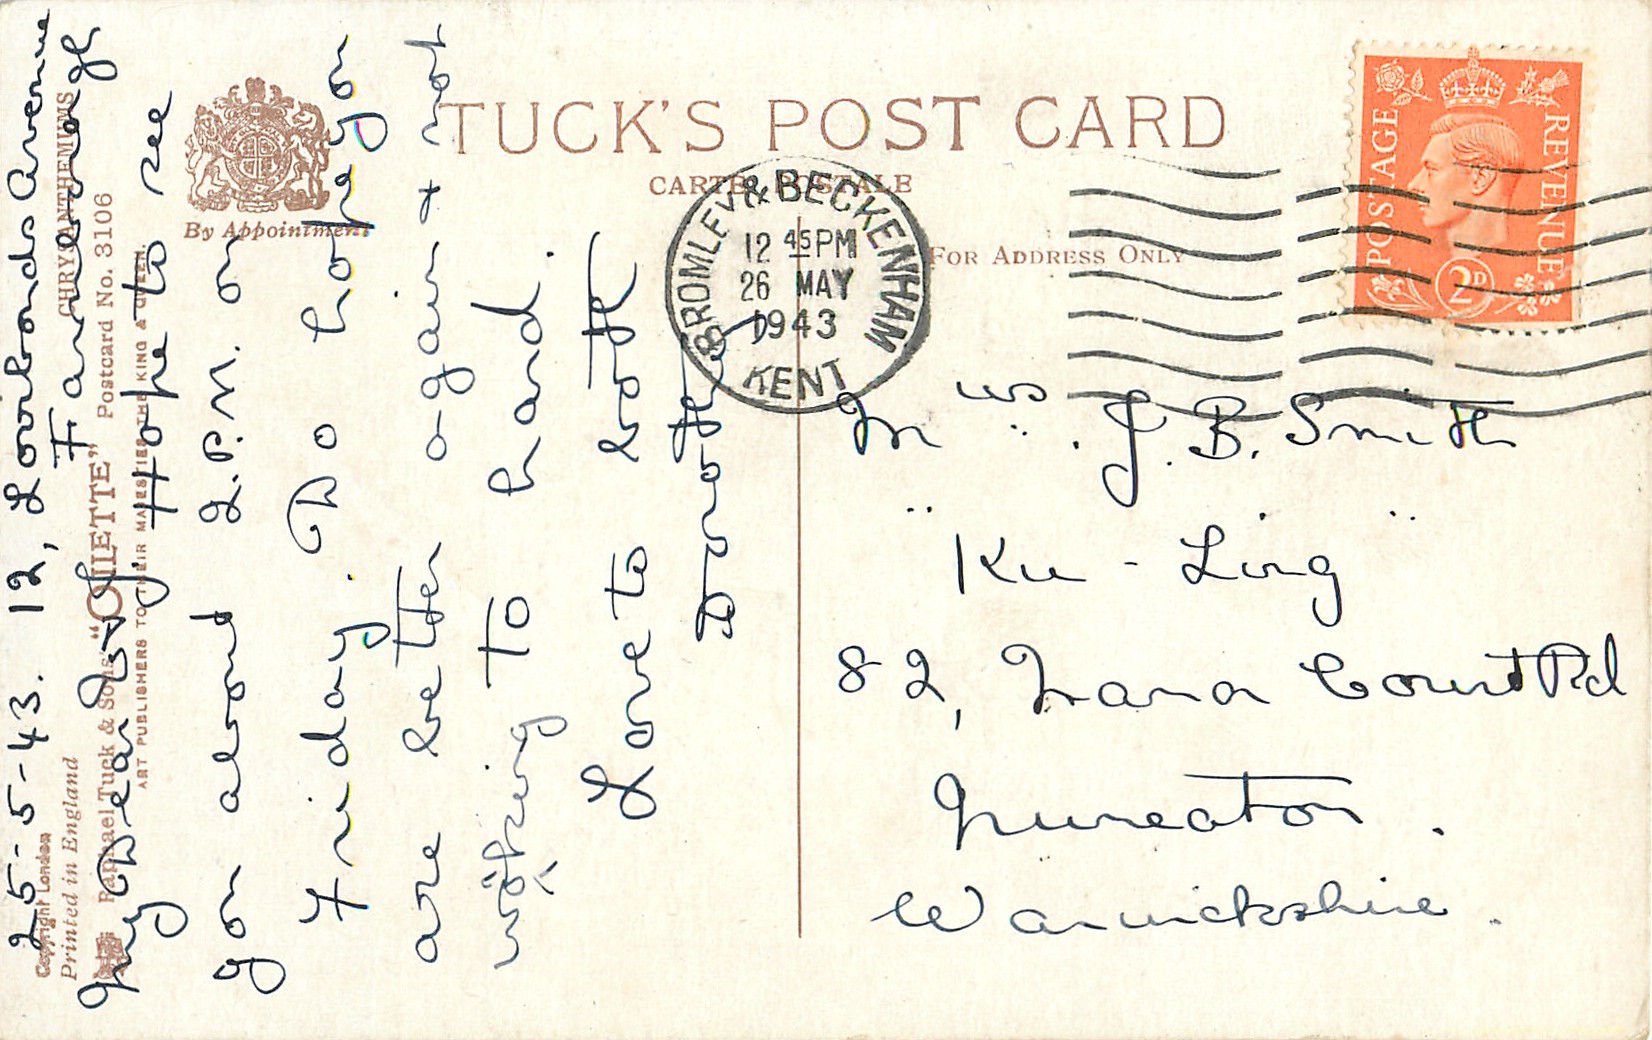 TUCK'S POST CARD
CARTE POSTALE
FOR ADDRESS ONLY
By Appointment
CHRYSANTHEMUMS
Copyright London
Printed in England
Raphael Tuck & Sons' "OILETTE" Postcard No. 3106
ART PUBLISHERS TO THEIR MAJESTIES THE KING & QUEEN.
25-5-43. 12, Lovibonds Avenue
Farnborough
My Dear Hope to see
you about 2.P.M. on
Friday. Do hope you
are better again & not
working to hard.
Love to both
Dorothy
BROMLEY & BECKENHAM
12 45 PM
26 MAY
1943
KENT
POSTAGE
REVENUE
2D
Mrs. J. B. Smith
"Ku-Ling"
82, Manor Court Rd
Nuneaton.
Warwickshire.